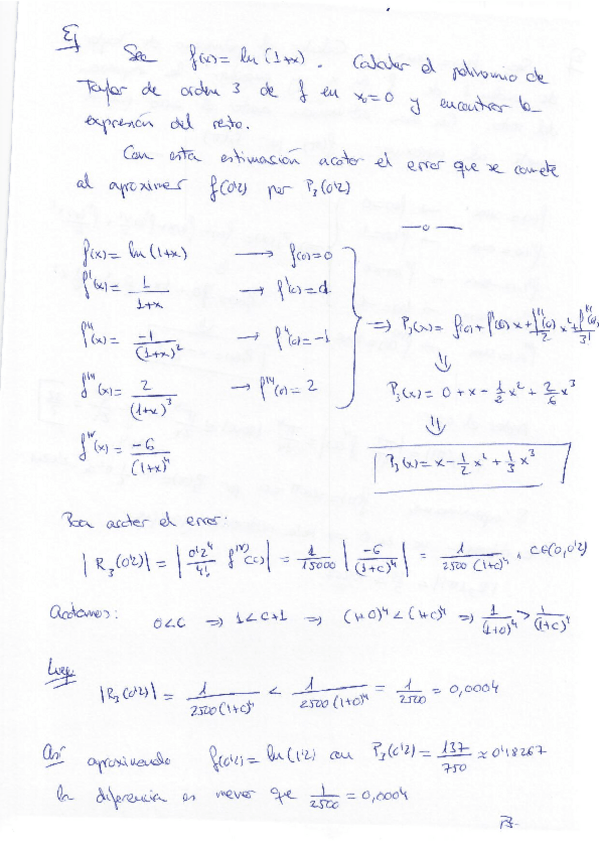 Ej Sea f(x) = ln(1+x). Calcular el polinomio de
Taylor de orden 3 de f en x₀=0 y encontrar la
expresión del resto.
Con esta estimación acotar el error que se comete
al aproximar f(0'2) por P₃(0'2)
—o—
f(x) = ln(1+x) → f(0)=0
f'(x) = 1/(1+x) → f'(0)=1
f''(x) = -1/(1+x)² → f''(0)=-1
f'''(x) = 2/(1+x)³ → f'''(0)=2
f^IV(x) = -6/(1+x)⁴
⇒ P₃(x) = f(0)+f'(0)x+f''(0)/2 x²+f'''(0)/3!
⇓
P₃(x) = 0+x-1/2 x²+2/6 x³
⇓
P₃(x) = x-1/2 x²+1/3 x³
Para acotar el error:
|R₃(0'2)| = |0'2⁴/4! f^(IV)(c)| = 1/15000 |-6/(1+c)⁴| = 1/(2500(1+c)⁴), c∈(0,0'2)
Acotamos: 0<c ⇒ 1<c+1 ⇒ (1+0)⁴<(1+c)⁴ ⇒ 1/(1+0)⁴ > 1/(1+c)⁴
Luego
|R₃(0'2)| = 1/(2500(1+c)⁴) < 1/(2500(1+0)⁴) = 1/2500 = 0,0004
Así aproximando f(0'2) = ln(1'2) con P₃(0'2) = 137/750 ≈ 0'18267
la diferencia es menor que 1/2500 = 0,0004